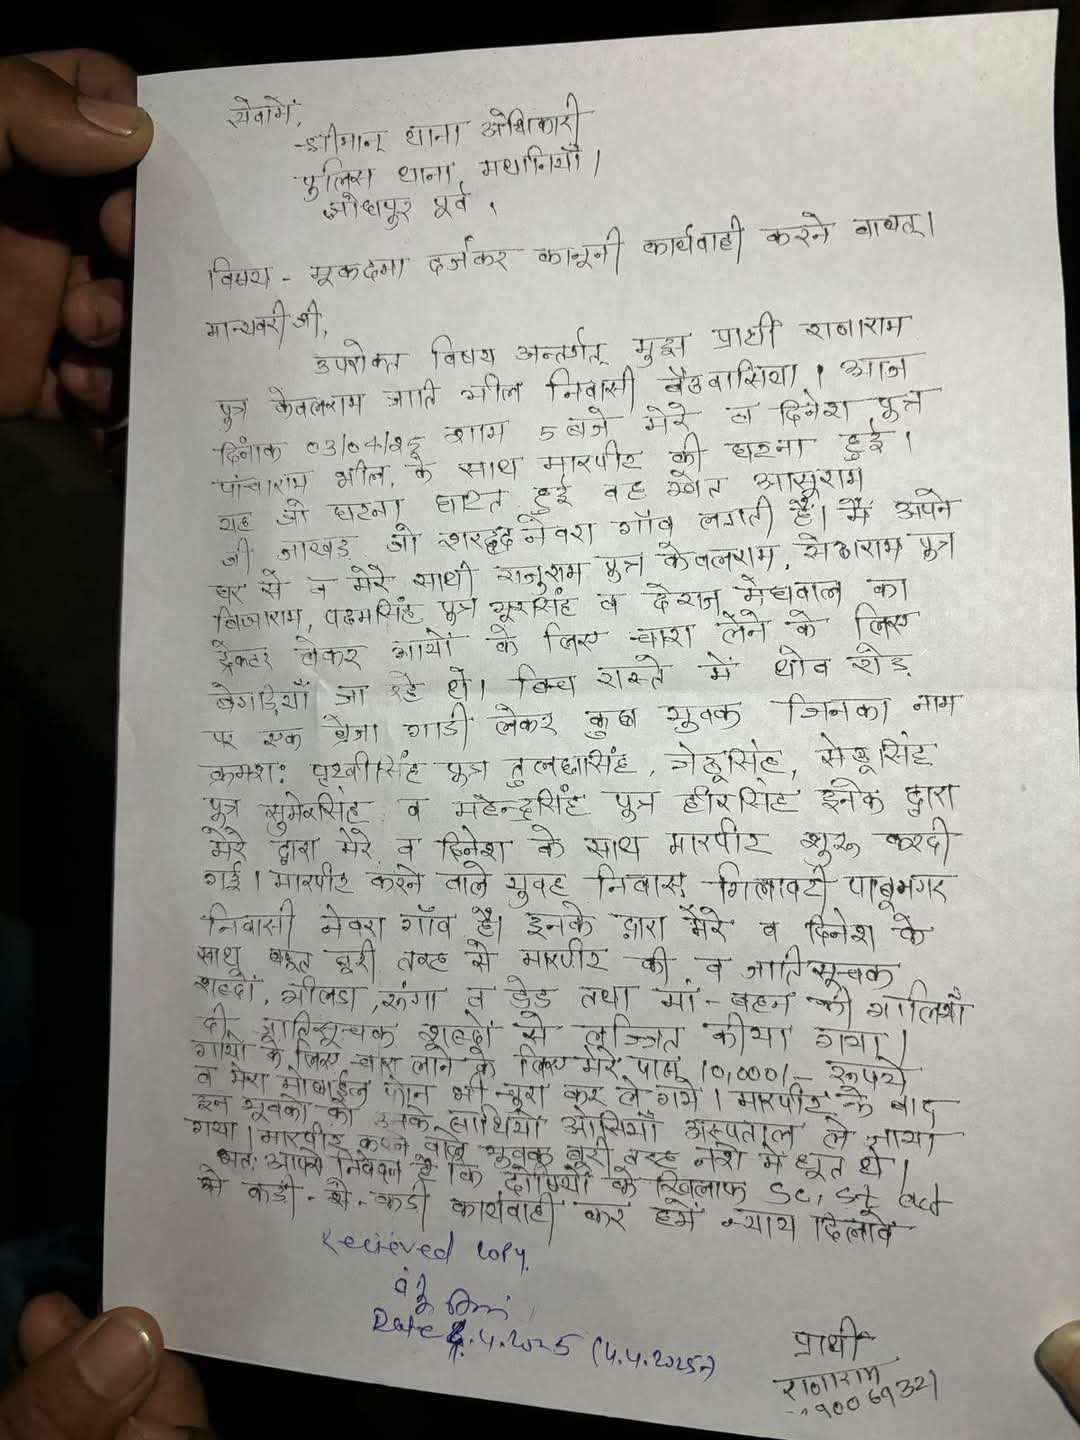 सेवामें,
श्रीमान् थाना अधिकारी
पुलिस थाना, मथानियाँ।
जोधपुर पूर्व,
विषय - मूकदमा दर्जकर कानूनी कार्यवाही करने बाबत्।
मान्यवरी जी,
उपरोक्त विषय अन्तर्गत् मुझ प्रार्थी राणाराम
पुत्र केवलराम जाति भील निवासी बैठवासिया। आज
दिनांक 03/04/25 शाम 5 बजे मेरे व दिनेश पुत्र
पांचाराम भील, के साथ मारपीट की घटना हुई।
यह जो घटना घटित हुई वह खेत आसूराम
जी जाखड़ जो शरहद नेवरा गाँव लगती है। मैं अपने
घर से व मेरे साथी राजुराम पुत्र केवलराम, सेठाराम पुत्र
विजाराम, पदमसिंह पुत्र भूरसिंह व देराज मेघवाल का
ट्रेक्टर लेकर गायों के लिए चारा लेने के लिए
बेगड़ियाँ जा रहे थे। बिच रास्ते में थोब रोड़
पर एक ब्रेजा गाडी लेकर कुछ युवक जिनका नाम
क्रमश: पृथ्वीसिंह पुत्र तुलछासिंह, जेठूसिंह, सेठूसिंह
पुत्र सुमेरसिंह व महेन्द्रसिंह पुत्र हीरसिंह इनके द्वारा
मेरे द्वारा मेरे व दिनेश के साथ मारपीट शुरू करदी
गई। मारपीट करने वाले युवह निवास गिलाकटी पाबूनगर
निवासी नेवरा गाँव है। इनके द्वारा मेरे व दिनेश के
साथ बहुत बूरी तरह से मारपीट की व जातिसूचक
शब्दों, भीलडा, रुंगा व ढेड़ तथा मां - बहन की गालियाँ
दी, जातिसूचक शब्दों से लज्जित कीया गया।
गायों के लिए चारा लाने के लिए मेरे पास 10,000/- रूपये
व मेरा मोबाईल फोन भी चुरा कर ले गये। मारपीट के बाद
इन युवको को उनके साथियों ओसियाँ अस्पताल ले जाया
गया। मारपीट करने वाले युवक बूरी तरह नशे में धूत थे।
अत: आपसे निवेदन है कि दोषियों के खिलाफ SC, ST act
से कडी - से - कडी कार्यवाही कर हमें न्याय दिलावे
Recieved copy.
Date 4.4.2025 (4.4.2025)
प्रार्थी
राणाराम